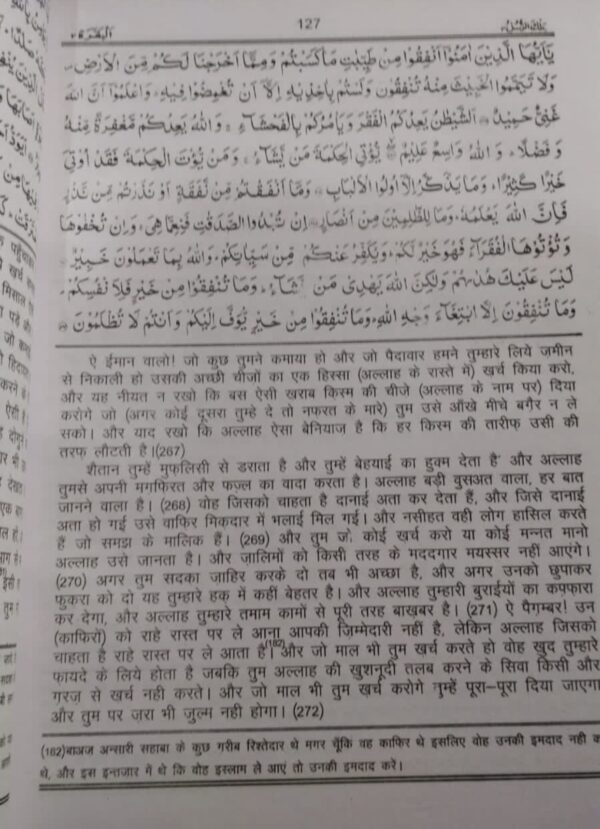 البقرة ٢
127
تلك الرسل ٣
يٰۤاَيُّهَا الَّذِيْنَ اٰمَنُوْۤا اَنْفِقُوْا مِنْ طَيِّبٰتِ مَا كَسَبْتُمْ وَمِمَّاۤ اَخْرَجْنَا لَكُمْ مِّنَ الْاَرْضِ
وَلَا تَيَمَّمُوا الْخَبِيْثَ مِنْهُ تُنْفِقُوْنَ وَلَسْتُمْ بِاٰخِذِيْهِ اِلَّاۤ اَنْ تُغْمِضُوْا فِيْهِ وَاعْلَمُوْۤا اَنَّ اللّٰهَ
غَنِيٌّ حَمِيْدٌ اَلشَّيْطٰنُ يَعِدُكُمُ الْفَقْرَ وَيَاْمُرُكُمْ بِالْفَحْشَآءِ وَاللّٰهُ يَعِدُكُمْ مَّغْفِرَةً مِّنْهُ
وَفَضْلًا وَاللّٰهُ وَاسِعٌ عَلِيْمٌ يُّؤْتِي الْحِكْمَةَ مَنْ يَّشَآءُ وَمَنْ يُّؤْتَ الْحِكْمَةَ فَقَدْ اُوْتِيَ
خَيْرًا كَثِيْرًا وَمَا يَذَّكَّرُ اِلَّاۤ اُولُوا الْاَلْبَابِ وَمَاۤ اَنْفَقْتُمْ مِّنْ نَّفَقَةٍ اَوْ نَذَرْتُمْ مِّنْ نَّذْرٍ
فَاِنَّ اللّٰهَ يَعْلَمُهٗ وَمَا لِلظّٰلِمِيْنَ مِنْ اَنْصَارٍ اِنْ تُبْدُوا الصَّدَقٰتِ فَنِعِمَّا هِيَ وَاِنْ تُخْفُوْهَا
وَتُؤْتُوْهَا الْفُقَرَآءَ فَهُوَ خَيْرٌ لَّكُمْ وَيُكَفِّرُ عَنْكُمْ مِّنْ سَيِّاٰتِكُمْ وَاللّٰهُ بِمَا تَعْمَلُوْنَ خَبِيْرٌ
لَيْسَ عَلَيْكَ هُدٰىهُمْ وَلٰكِنَّ اللّٰهَ يَهْدِيْ مَنْ يَّشَآءُ وَمَا تُنْفِقُوْا مِنْ خَيْرٍ فَلِاَنْفُسِكُمْ
وَمَا تُنْفِقُوْنَ اِلَّا ابْتِغَآءَ وَجْهِ اللّٰهِ وَمَا تُنْفِقُوْا مِنْ خَيْرٍ يُّوَفَّ اِلَيْكُمْ وَاَنْتُمْ لَا تُظْلَمُوْنَ
ऐ ईमान वालो! जो कुछ तुमने कमाया हो और जो पैदावार हमने तुम्हारे लिये ज़मीन
से निकाली हो उसकी अच्छी चीजों का एक हिस्सा (अल्लाह के रास्ते में) खर्च किया करो,
और यह नीयत न रखो कि बस ऐसी खराब किस्म की चीजे (अल्लाह के नाम पर) दिया
करोगे जो (अगर कोई दूसरा तुम्हे दे तो नफरत के मारे) तुम उसे आँखे मीचे बगैर न ले
सको। और याद रखो कि अल्लाह ऐसा बेनियाज है कि हर किस्म की तारीफ उसी की
तरफ लौटती है।(267)
शैतान तुम्हें मुफलिसी से डराता है और तुम्हें बेहयाई का हुक्म देता है और अल्लाह
तुमसे अपनी मगफिरत और फज्ल का वादा करता है। अल्लाह बड़ी वुसअत वाला, हर बात
जानने वाला है। (268) वोह जिसको चाहता है दानाई अता कर देता हैं, और जिसे दानाई
अता हो गई उसे वाफिर मिकदार में भलाई मिल गई। और नसीहत वही लोग हासिल करते
हैं जो समझ के मालिक हैं। (269) और तुम जो कोई खर्च करो या कोई मन्नत मानो
अल्लाह उसे जानता है। और ज़ालिमों को किसी तरह के मददगार मयस्सर नहीं आएंगे।
(270) अगर तुम सदका ज़ाहिर करके दो तब भी अच्छा है, और अगर उनको छुपाकर
फुकरा को दो यह तुम्हारे हक़ में कहीं बेहतर है। और अल्लाह तुम्हारी बुराईयों का कफ़्फ़ारा
कर देगा, और अल्लाह तुम्हारे तमाम कामों से पूरी तरह बाखबर है। (271) ऐ पैगम्बर! उन
(काफिरों) को राहे रास्त पर ले आना आपकी ज़िम्मेदारी नहीं है, लेकिन अल्लाह जिसको
चाहता है राहे रास्त पर ले आता है।(182)और जो माल भी तुम खर्च करते हो वोह खुद तुम्हारे
फायदे के लिये होता है जबकि तुम अल्लाह की खुशनूदी तलब करने के सिवा किसी और
गरज़ से खर्च नही करते। और जो माल भी तुम ख़र्च करोगे तुम्हें पूरा–पूरा दिया जाएगा
और तुम पर ज़रा भी ज़ुल्म नही होगा। (272)
(182)बाअज अन्सारी सहाबा के कुछ गरीब रिश्तेदार थे मगर चूँकि वह काफिर थे इसलिए वोह उनकी इमदाद नही क
थे, और इस इन्तज़ार में थे कि वोह इस्लाम ले आएं तो उनकी इमदाद करें।